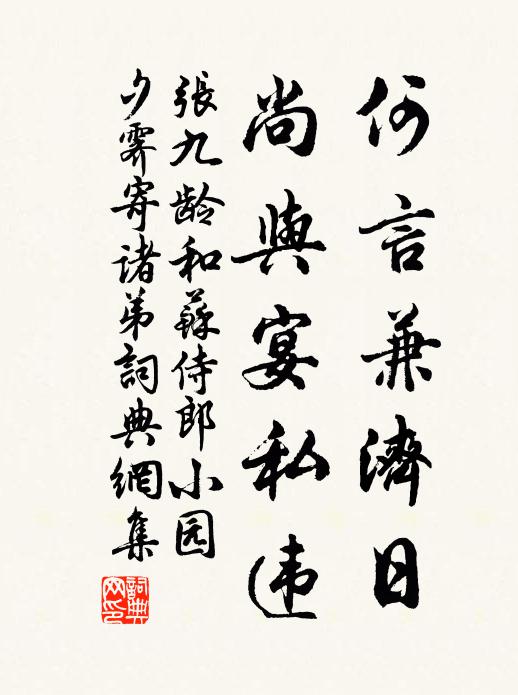 何言兼濟日
尚與宴私违
張九龄和蘇侍郎小园
夕霽寄诸弟詞典網集
詞典网印